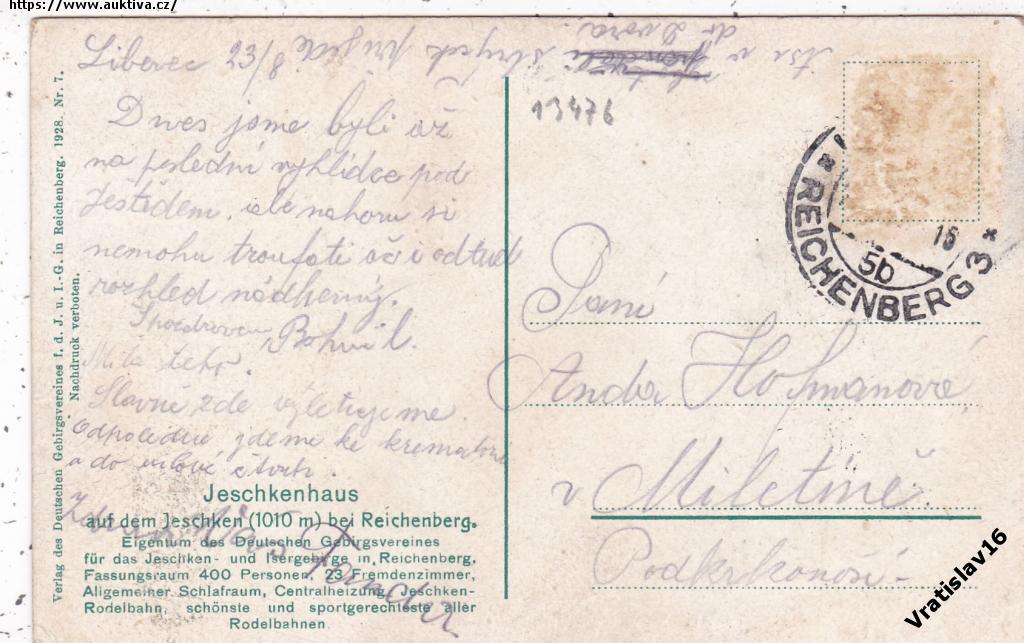 https://www.auktiva.cz/
Liberec 23/8
Dnes jsme byli až
na poslední vyhlídce pod
Ještědem, ale nahoru si
nemohu troufati ač i odtud
rozhled nádherný.
Bohumil.
Milá teto.
Slavně zde výletujeme.
Odpoledne jdeme ke krematoriu
a do vilové čtvrti.
13476
REICHENBERG 3
5b
15
Paní
Anda Hofmanová
v Miletíně
Podkrkonoší
Jeschkenhaus
auf dem Jeschken (1010 m) bei Reichenberg.
Eigentum des Deutschen Gebirgsvereines
für das Jeschken- und Isergebirge in Reichenberg.
Fassungsraum 400 Personen, 23 Fremdenzimmer,
Allgemeiner Schlafraum, Centralheizung, Jeschken-
Rodelbahn, schönste und sportgerechteste aller
Rodelbahnen.
Verlag des Deutschen Gebirgsvereines f. d. J. u. I.-G. in Reichenberg. 1928. Nr. 7.
Nachdruck verboten.
Vratislav16